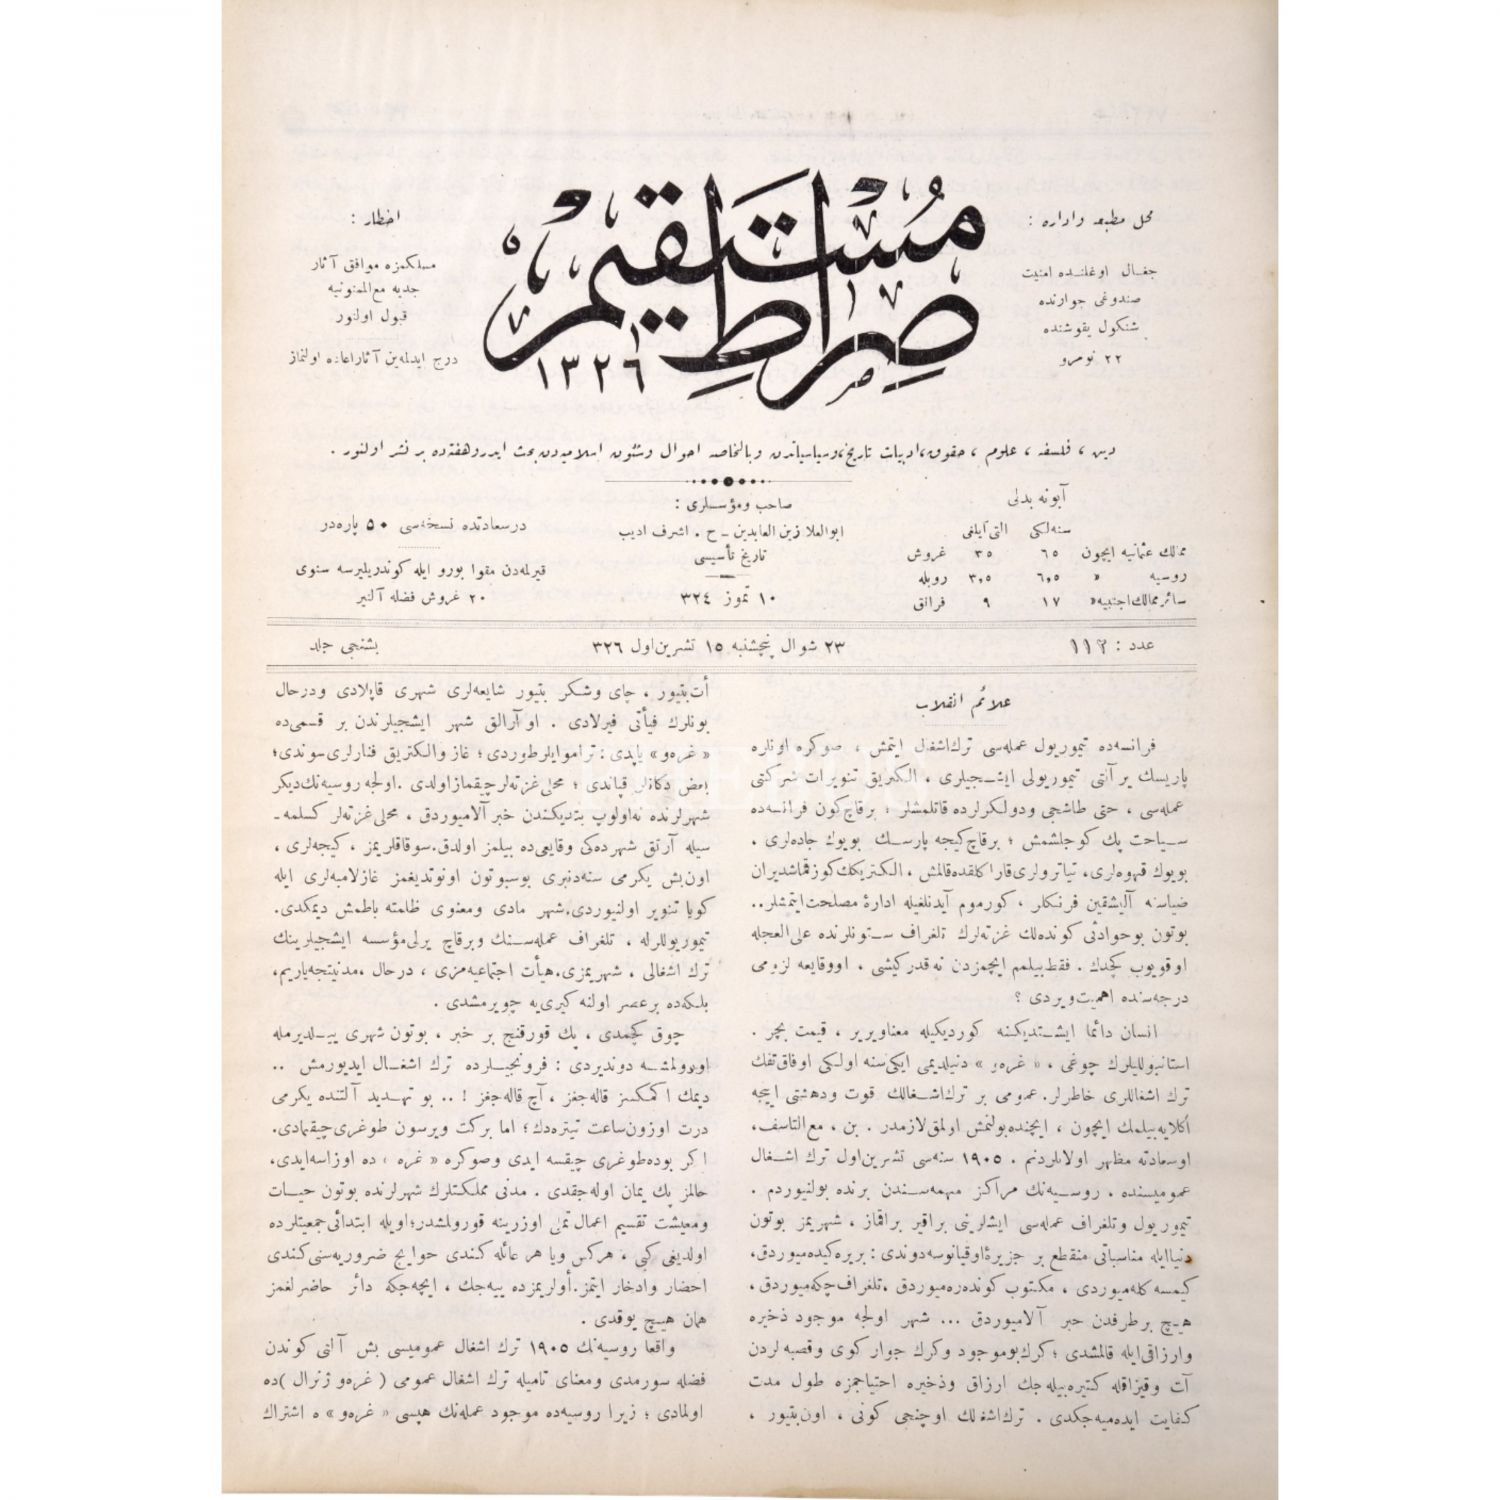 محل مطبعه واداره :
جغال اوغلنده امنيت
صندوغی جوارنده
شنكول يقوشنده
٢٢ نومرو
صِراطِ مُستَقيم
١٣٢٦
اخطار :
مسلكمزه موافق آثار
جديه مع الممنونيه
قبول اولنور
درج ايدلمه‌ين آثار اعاده اولنماز
دين ، فلسفه ، علوم ، حقوق ، ادبيات تاريخ ، وسياسياتدن وبالخاصه احوال وشئون اسلاميه‌دن بحث ايدر وهفته‌ده بر نشر اولنور .
آبونه بدلی
سنه‌لكی التی آيلغی
ممالك عثمانيه ايچون ٦٥ ٣٥ غروش
روسيه » ٦,٥ ٣,٥ روبله
سائر ممالك اجنبيه » ١٧ ٩ فرانق
صاحب ومؤسسلری :
ابوالعلا زين العابدين ـ ح . اشرف اديب
تاريخ تأسيسی
١٠ تموز ٣٢٤
درسعادتده نسخه‌سی ٥٠ پاره‌در
قيرلمه‌دن مقوا بورو ايله كوندريليرسه سنوی
٢٠ غروش فضله آلنير
عدد : ١١٢
٢٣ شوال پنجشنبه ١٥ تشرين اول ٣٢٦
بشنجی جلد
علائم انقلاب
فرانسه‌ده تيموريول عمله‌سی ترك اشغال ايتمش ، صوكره اونلره
پاريسك ير آلتی تيموريولی ايشجيلری ، الكتريق تنويرات شركتی
عمله‌سی ، حتی طاشجی ودولكرلرده قاتلمشلر ؛ برقاچ كون فرانسه‌ده
سياحت پك كوجلشمش ؛ برقاچ كيجه پارسك بويوك جاده‌لری ،
بويوك قهوه‌لری ، تياترولری قارا كلقده قالمش ، الكتريكك كوز قماشديران
ضياسنه آليشقين فرنكلر ، كورموم آيدنلغيله ادارهٔ مصلحت ايتمشلر..
بوتون بو حوادثی كونده‌لك غزته‌لرك تلغراف ستونلرنده علی العجله
اوقويوب كچدك . فقط بيلمم ايچمزدن نه قدر كيشی ، او وقايعه لزومی
درجه‌سنده اهميت ويردی ؟
انسان دائما ايشتديكنه كورديكيله معنا ويرير ، قيمت بچر .
استانبوليلرك چوغی ، « غره‌و » دنيلديمی ايكی سنه اولكی اوفاق تفك
ترك اشغاللری خاطرلر. عمومی بر ترك اشغالك قوت ودهشتی اييجه
اكلايه‌بيلمك ايچون ، ايچنده بولنمش اولمق لازمدر . بن ، مع التاسف ،
او سعادته مظهر اولانلردنم . ١٩٠٥ سنه‌سی تشرين اول ترك اشغال
عموميسنده ، روسيه‌نك مراكز مهمه‌سندن برنده بولنيوردم .
تيموريول وتلغراف عمله‌سی ايشلرينی براقير براقماز ، شهريمز بوتون
دنيا ايله مناسباتی منقطع بر جزيرهٔ اوقيانوسه دوندی : بريره كيده‌ميوردق،
كيمسه كله‌ميوردی ، مكتوب كوندره‌ميوردق ، تلغراف چكه‌ميوردق ،
هيچ بر طرفدن خبر آلاميوردق ... شهر اولجه موجود ذخيره
وارزاقی ايله قالمشدی ؛ كرك بو موجود وكرك جوار كوی وقصبه لردن
آت وقيزاقله كتيره‌بيله‌جك ارزاق وذخيره احتياجمزه طول مدت
كفايت ايده‌ميه‌جكدی . ترك اشغالك اوچنجی كونی ، اون بتيور ،
أت بتيور ، چای وشكر بتيور شايعه‌لری شهری قاپلادی ودرحال
بونلرك فيأتی فيرلادی . او آرالق شهر ايشجيلرندن بر قسمی‌ده
« غره‌و » ياپدی : تراموايلر طوردی ؛ غاز والكتريق فنارلری سوندی ؛
بعض دكانلر قپاندی ؛ محلی غزته‌لر چيقماز اولدی . اولجه روسيه‌نك ديكر
شهرلرنده نه‌ اولوپ بتديكندن خبر آلاميوردق ، محلی غزته‌لر كسلمه‌ـ
سيله آرتق شهرده‌كی وقايعی‌ده بيلمز اولدق. سوقاقلريمز ، كيجه‌لری ،
اون بش يكرمی سنه‌دنبری بوسبوتون اونوتديغمز غازلامبه‌لری ايله
كويا تنوير اولنيوردی. شهر مادی ومعنوی ظلمته باطمش ديمكدی.
تيموريوللرله ، تلغراف عمله‌سنك وبرقاچ يرلی مؤسسه ايشجيلرينك
ترك اشغالی ، شهريمزی، هيأت اجتماعيه‌مزی ، درحال ، مدنيتجه ياريم،
بلكه‌ده بر عصر اولنه كيری‌يه چويرمشدی .
چوق كچمدی ، پك قورقنج بر خبر ، بوتون شهری ييلديرمله
اورولمشه دونديردی : فرونجيلرده ترك اشغال ايديورمش ..
ديمك اكمكسز قاله‌جغز ، آچ قاله‌جغز ! .. بو تهديد آلتنده يكرمی
درت اوزون ساعت تيتره‌دك ؛ اما بركت ويرسون طوغری چيقمادی.
اكر بوده طوغری چيقسه ايدی وصوكره « غره‌و » ده اوزاسه‌ايدی،
حالمز پك يمان اوله‌جقدی . مدنی مملكتلرك شهرلرنده بوتون حيات
ومعيشت تقسيم اعمال تملی اوزرينه قورولمشدر ؛ اويله ابتدائی جمعيتلرده
اولديغی كبی ، هركس ويا هر عائله كندی حوايج ضروريه‌سنی كندی
احضار وادخار ايتمز. أولريمزده ييه‌جك ، ايچه‌جكه دائر حاضرلغمز
همان هيچ يوقدی .
واقعا روسيه‌نك ١٩٠٥ ترك اشغال عموميسی بش آلتی كوندن
فضله سورمدی ومعنای تاميله ترك اشغال عمومی ( غره‌و ژنرال ) ده
اولمادی ؛ زيرا روسيه‌ده موجود عمله‌نك هپسی « غره‌و » ه اشتراك